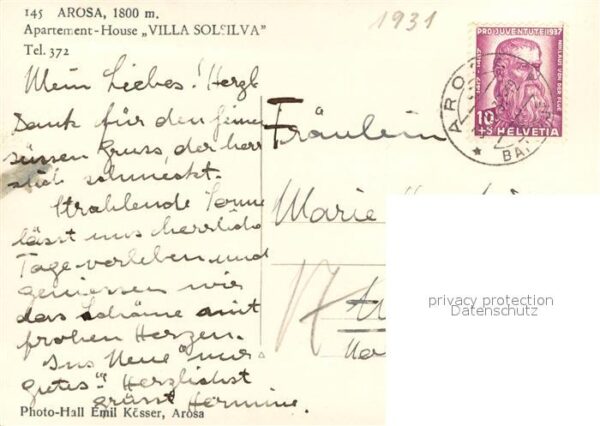 145 AROSA, 1800 m.
Apartement-House „VILLA SOLSILVA"
Tel. 372
1931
PRO JUVENTUTE 1937
NIKLAUS VON DER FLÜE
1417 1487
10
+5 HELVETIA
ARO
BA
Mein Liebes! Herzl
Dank für den feinen
süssen Gruss, der herr
slich schmeckt.
Strahlende Sonne
lässt uns herrliche
Tage verleben und
geniessen wir
das Schöne mit
frohen Herzen.
Ins Neue "nur
gutes"! Herzlichst
grüsst Hermine.
Fräulein
Marie
privacy protection
Datenschutz
Photo-Hall Emil Kesser, Arosa